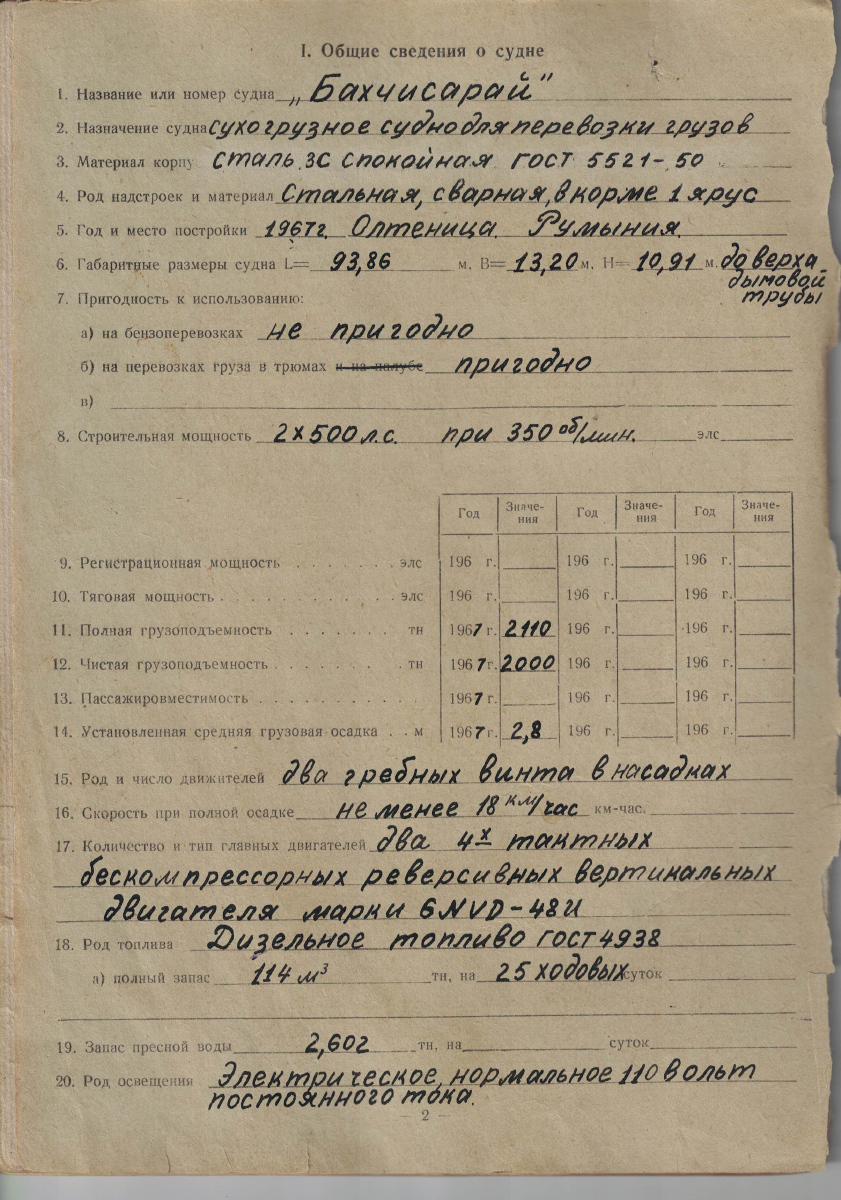 I. Общие сведения о судне
1. Название или номер судна „Бахчисарай"
2. Назначение судна сухогрузное судно для перевозки грузов
3. Материал корпу сталь 3С спокойная ГОСТ 5521-50
4. Род надстроек и материал Стальная, сварная, в корме 1 ярус
5. Год и место постройки 1967г. Олтеница. Румыния.
6. Габаритные размеры судна L= 93,86 м, B= 13,20 м, H= 10,91 м. до верха
дымовой
трубы
7. Пригодность к использованию:
а) на бензоперевозках не пригодно
б) на перевозках груза в трюмах и на палубе пригодно
в)
8. Строительная мощность 2х500 л.с. при 350 об/мин. элс
Год Значе-ния Год Значе-ния Год Значе-ния
9. Регистрационная мощность . . . . . . . элс 196 г. 196 г. 196 г.
10. Тяговая мощность . . . . . . . . . . . элс 196 г. 196 г. 196 г.
11. Полная грузоподъемность . . . . . . . тн 1967 г. 2110 196 г. 196 г.
12. Чистая грузоподъемность . . . . . . . тн 1967 г. 2000 196 г. 196 г.
13. Пассажировместимость . . . . . . . . . . . 1967 г. 196 г. 196 г.
14. Установленная средняя грузовая осадка . . м 1967 г. 2,8 196 г. 196 г.
15. Род и число движителей два гребных винта в насадках
16. Скорость при полной осадке не менее 18 км/час км-час.
17. Количество и тип главных двигателей два 4х тактных
бескомпрессорных реверсивных вертикальных
двигателя марки 6NVD-48U
18. Род топлива Дизельное топливо ГОСТ 4938
а) полный запас 114 м³ тн, на 25 ходовых суток
19. Запас пресной воды 2,60 г тн, на суток
20. Род освещения Электрическое, нормальное 110 вольт
постоянного тока.
— 2 —